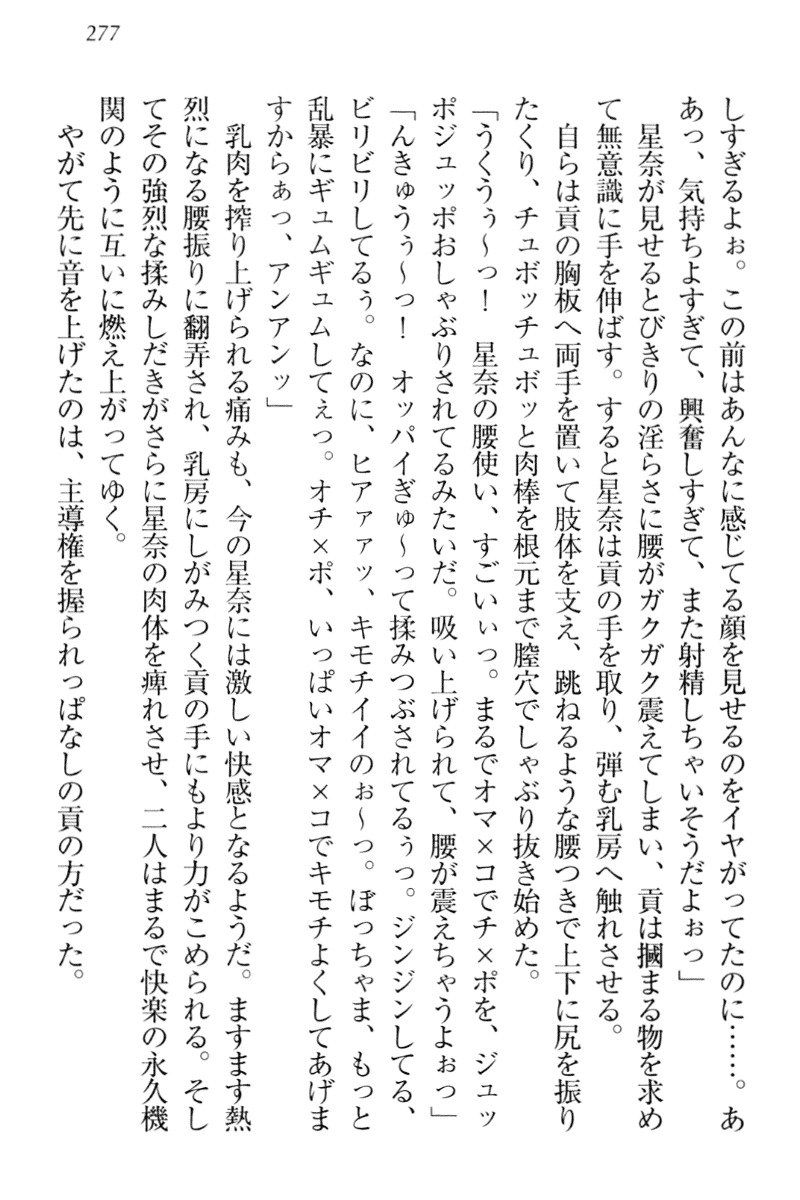 277
しすぎるよぉ。この前はあんなに感じてる顔を見せるのをイヤがってたのに……。あ
あっ、気持ちよすぎて、興奮しすぎて、また射精しちゃいそうだよぉっ」
　星奈が見せるとびきりの淫らさに腰がガクガク震えてしまい、貢は摑まる物を求め
て無意識に手を伸ばす。すると星奈は貢の手を取り、弾む乳房へ触れさせる。
　自らは貢の胸板へ両手を置いて肢体を支え、跳ねるような腰つきで上下に尻を振り
たくり、チュボッチュボッと肉棒を根元まで膣穴でしゃぶり抜き始めた。
「うくうぅ～っ！　星奈の腰使い、すごいぃっ。まるでオマ×コでチ×ポを、ジュッ
ポジュッポおしゃぶりされてるみたいだ。吸い上げられて、腰が震えちゃうよぉっ」
「んきゅうぅ～っ！　オッパイぎゅ～って揉みつぶされてるぅっ。ジンジンしてる、
ビリビリしてるぅ。なのに、ヒアァァッ、キモチイイのぉ～っ。ぼっちゃま、もっと
乱暴にギュムギュムしてぇっ。オチ×ポ、いっぱいオマ×コでキモチよくしてあげま
すからぁっ、アンアンッ」
　乳肉を搾り上げられる痛みも、今の星奈には激しい快感となるようだ。ますます熱
烈になる腰振りに翻弄され、乳房にしがみつく貢の手にもより力がこめられる。そし
てその強烈な揉みしだきがさらに星奈の肉体を痺れさせ、二人はまるで快楽の永久機
関のように互いに燃え上がってゆく。
　やがて先に音を上げたのは、主導権を握られっぱなしの貢の方だった。